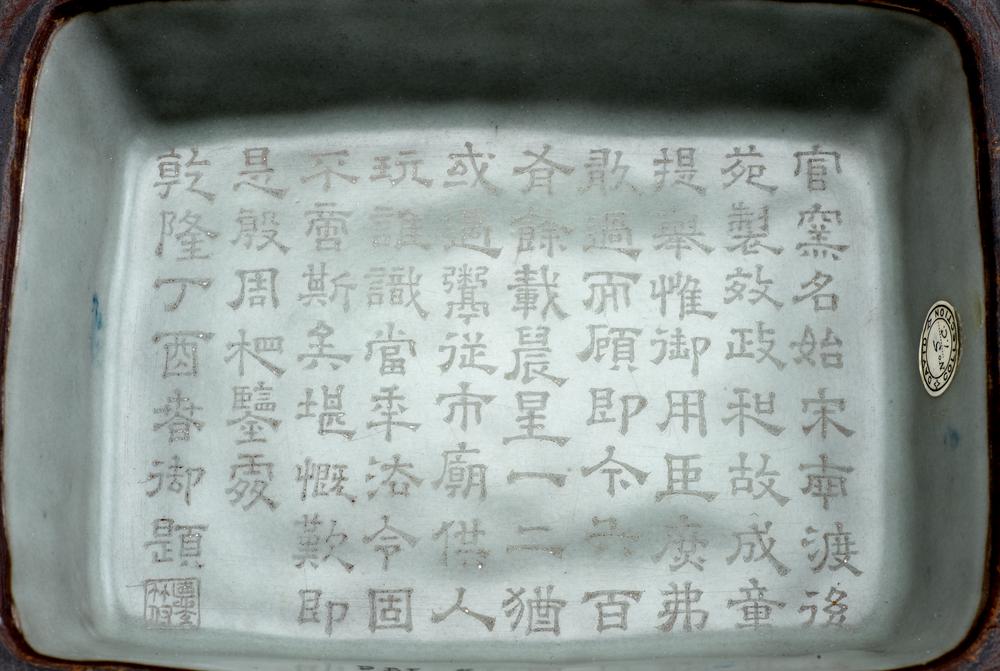 官窯名始宋南渡後
苑製效政和故成章
提舉惟御用臣庶弗
敢過而顧即今百
有餘載晨星一二猶
或遇鬻從市廟供人
玩誰識當年法令固
不啻斯矣堪慨歎即
是殷周鑒
乾隆丁酉春御題
DAVID COLLECTION